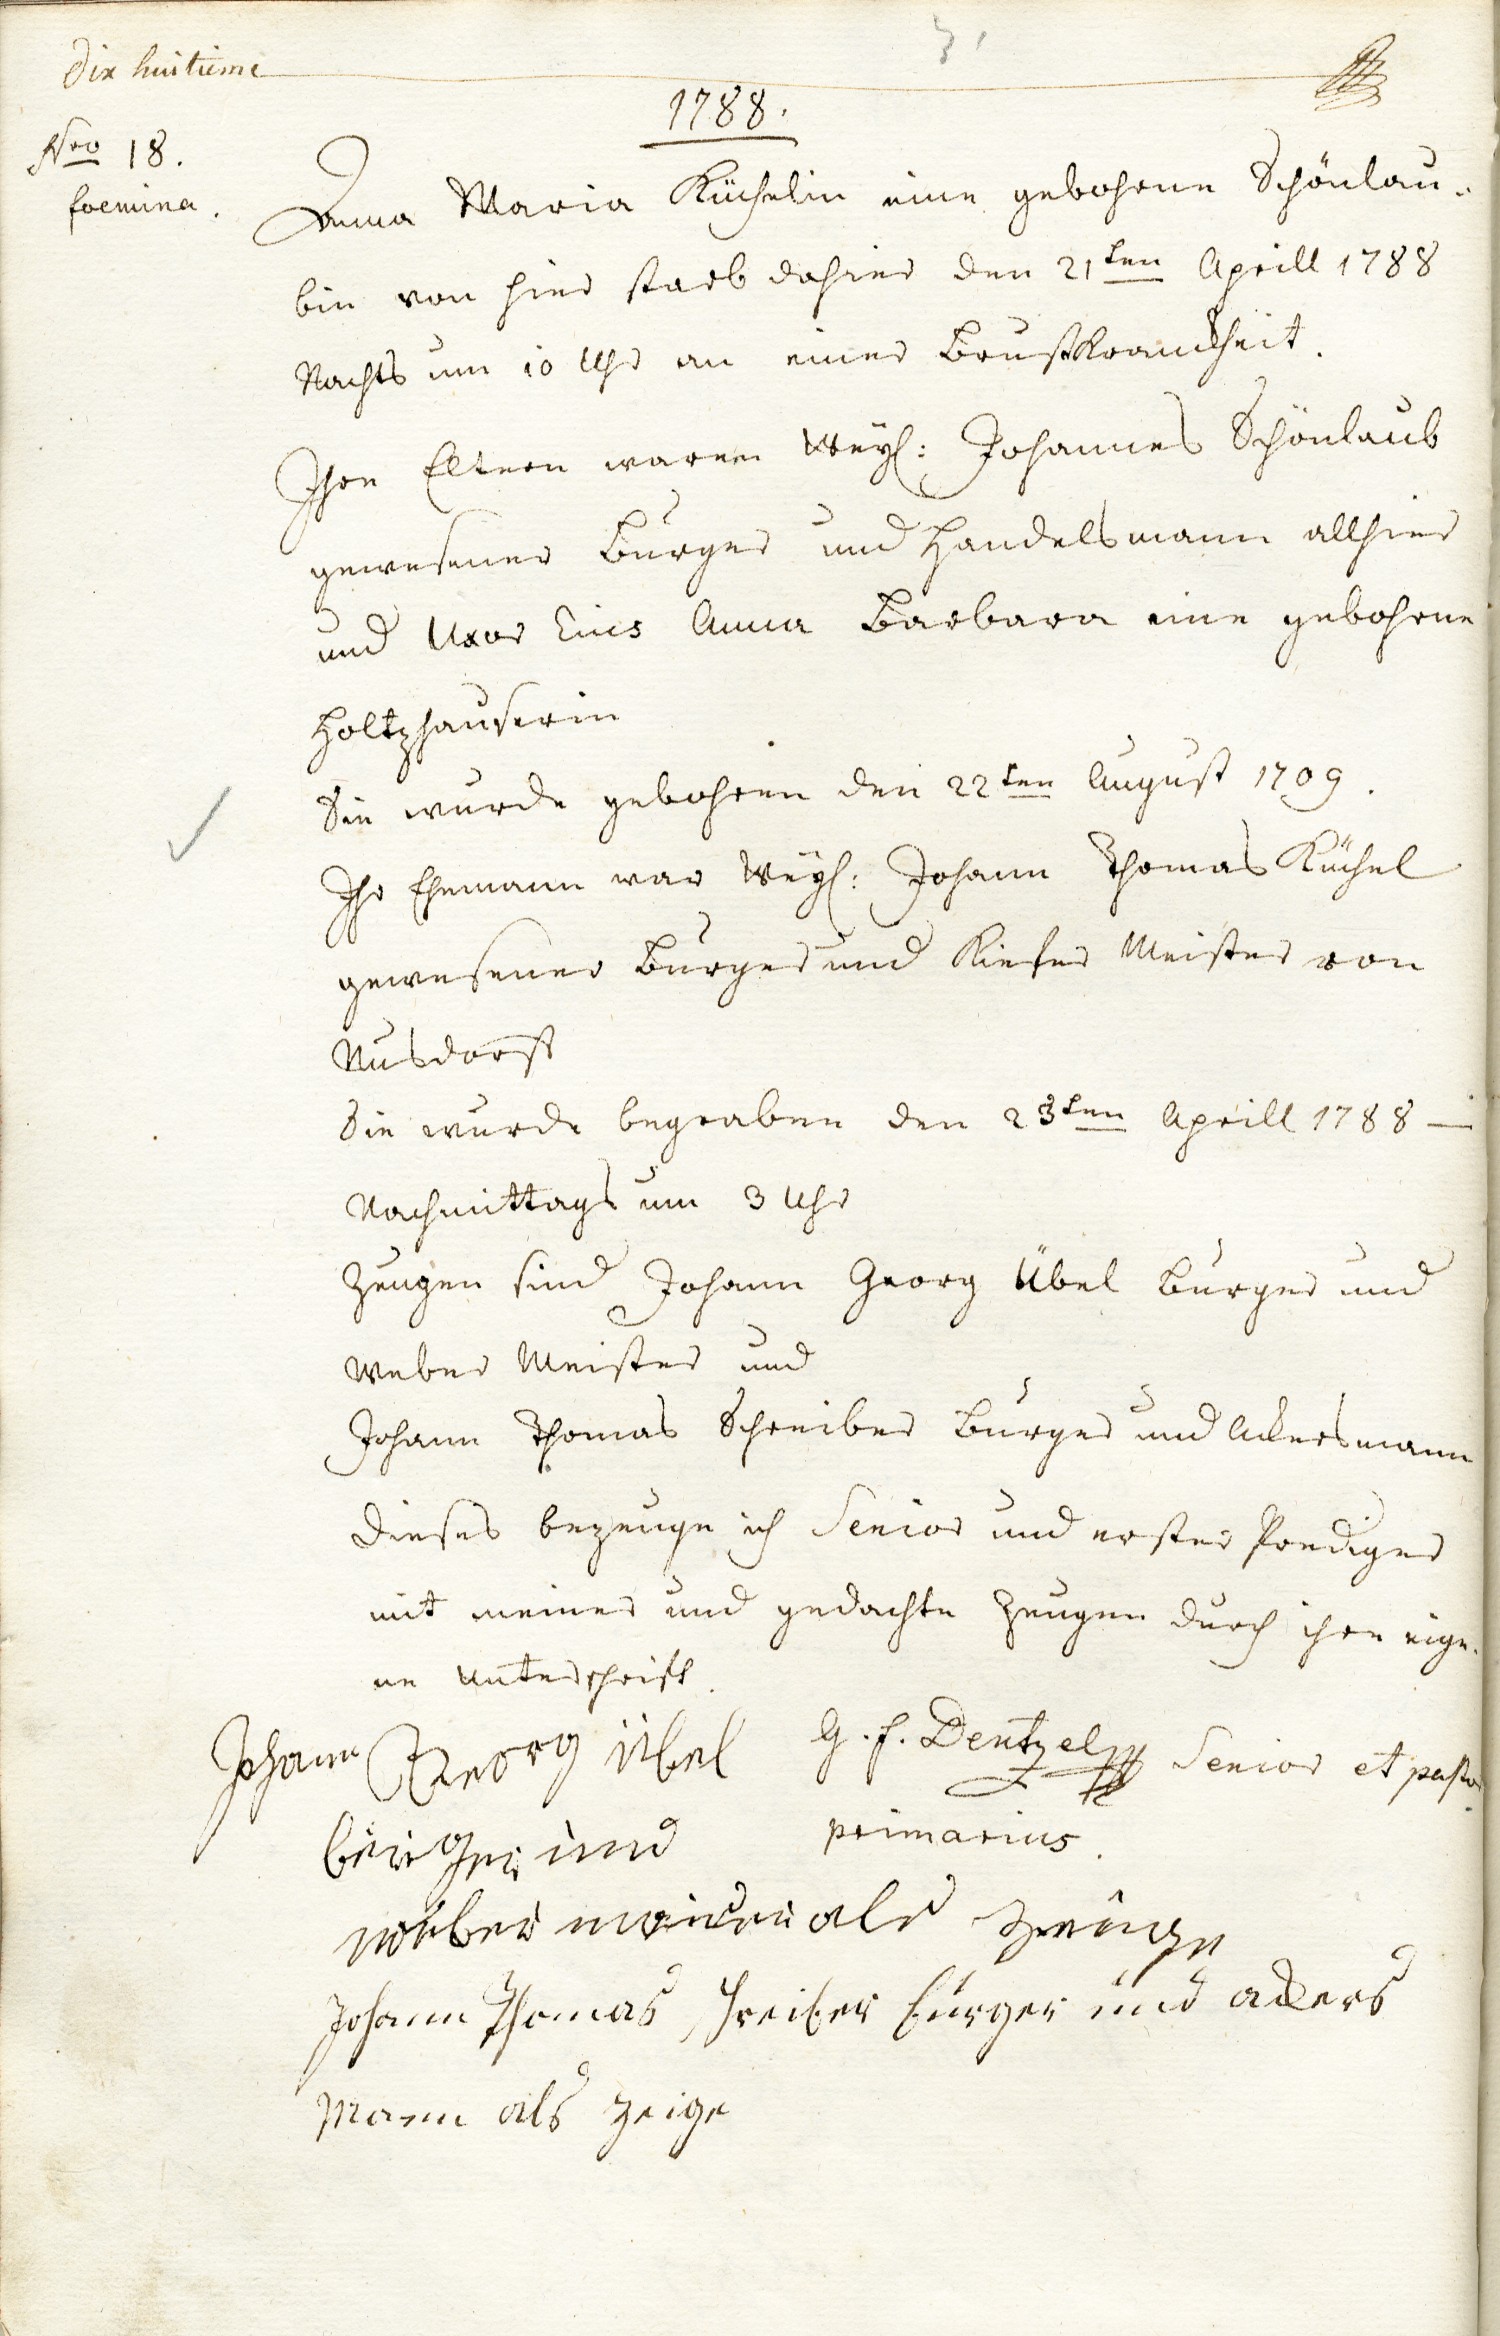 dix huitieme
1788.
Nro 18.
foemina.
Anna Maria Küchelin eine gebohrne Schönlau-
bin von hier starb dahier den 21ten Aprill 1788
Nachts um 10 Uhr an einer Brustkranckheit.
Ihre Eltern waren Weyl: Johannes Schönlaub
gewesener Burger und Handelsmann allhier
und Uxor Eius Anna Barbara eine gebohrne
Holtzhauserin
Sie wurde gebohren den 22ten August 1709.
Ihr Ehemann war Weyl: Johann Thomas Küchel
gewesener Burger und Kiefer Meister von
Nusdorff
Sie wurde begraben den 23ten Aprill 1788 —
Nachmittags um 3 Uhr
Zeugen sind Johann Georg Übel Burger und
Weber Meister und
Johann Thomas Schreiber Burger und Ackersmann
Dieses bezeuge ich Senior und erster Prediger
mit meiner und gedachte Zeugen durch ihre eige-
ne Unterschrift.
Johann Georg übel
G. F. Dentzel Senior et pastor
primarius.
bürger und
weber meister als zeuge
Johann Thomas schreiber bürger und ackers
Mann als zeige